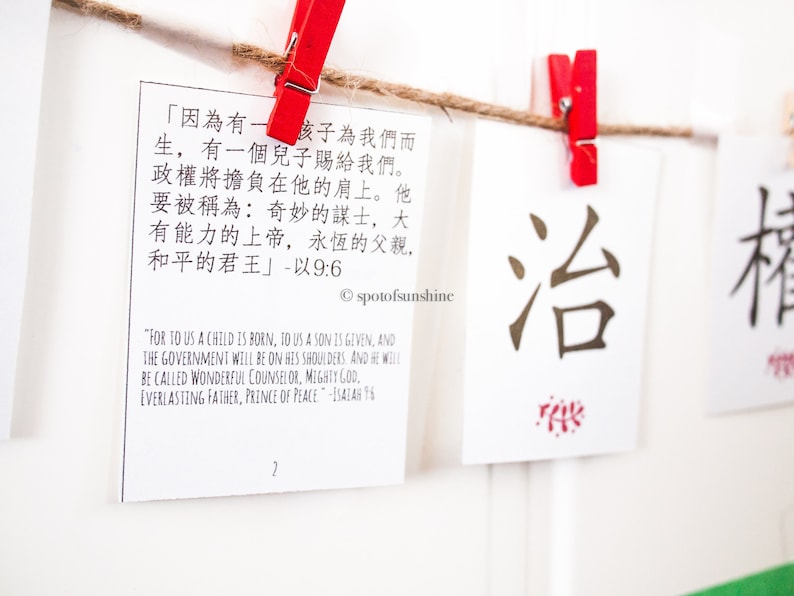 「因為有一 孩子為我們而
生，有一個兒子賜給我們。
政權將擔負在他的肩上。他
要被稱為：奇妙的謀士，大
有能力的上帝，永恆的父親，
和平的君王」-以9:6
"For to us a child is born, to us a son is given, and
the government will be on his shoulders. And he will
be called Wonderful Counselor, Mighty God,
Everlasting Father, Prince of Peace." -Isaiah 9:6
2
© spotofsunshine
治
權